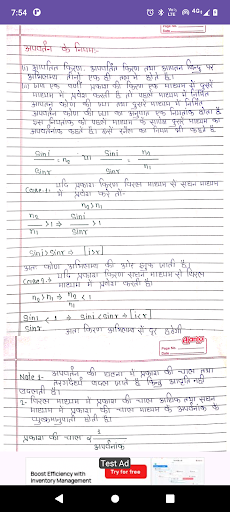 7:54
4G
Page No.
Date
अपवर्तन के नियम:-
(i) आपतित किरण, अपवर्तित किरण तथा आपतन बिन्दु पर
अभिलम्ब तीनों एक ही तल में होते हैं।
(ii) जब एक वर्णी प्रकाश की किरण एक माध्यम से दूसरे
माध्यम में प्रवेश करती है तो पहले माध्यम में निर्मित
आपतन कोण की ज्या तथा दूसरे माध्यम में निर्मित
अपवर्तन कोण की ज्या का अनुपात एक नियतांक होता है
इस नियतांक को पहले माध्यम के सापेक्ष दूसरे माध्यम का
अपवर्तनांक कहते हैं। इसे स्नैल का नियम भी कहते हैं
sini / sinr = n₂ या sini / sinr = n₂ / n₁
Case-1: यदि प्रकाश किरण विरल माध्यम से सघन माध्यम
में प्रवेश करे तो-
n₂ > n₁
n₂ / n₁ > 1 ⇒ sini / sinr > 1
sini > sinr ⇒ i > r
अतः कोण अभिलम्ब की ओर झुक जाती है।
Case-2 यदि प्रकाश किरण सघन माध्यम से विरल
माध्यम में प्रवेश करती है।
n₁ > n₂ ⇒ n₂ / n₁ < 1
sini / sinr < 1 ⇒ sini < sinr ⇒ i < r
अतः किरण अभिलम्ब से दूर हटेगी
Page No.
Date
Note 1- अपवर्तन की घटना में प्रकाश की चाल तथा
तरंगदैर्ध्य बदल जाते हैं किन्तु आवृत्ति नहीं
बदलती है।
2- विरल माध्यम में प्रकाश की चाल अधिक तथा सघन
माध्यम में प्रकाश की चाल माध्यम के अपवर्तनांक के
व्युत्क्रमानुपाती होती है।
प्रकाश की चाल ∝ 1 / अपवर्तनांक
Test Ad
Boost Efficiency with
Inventory Management
Try for free